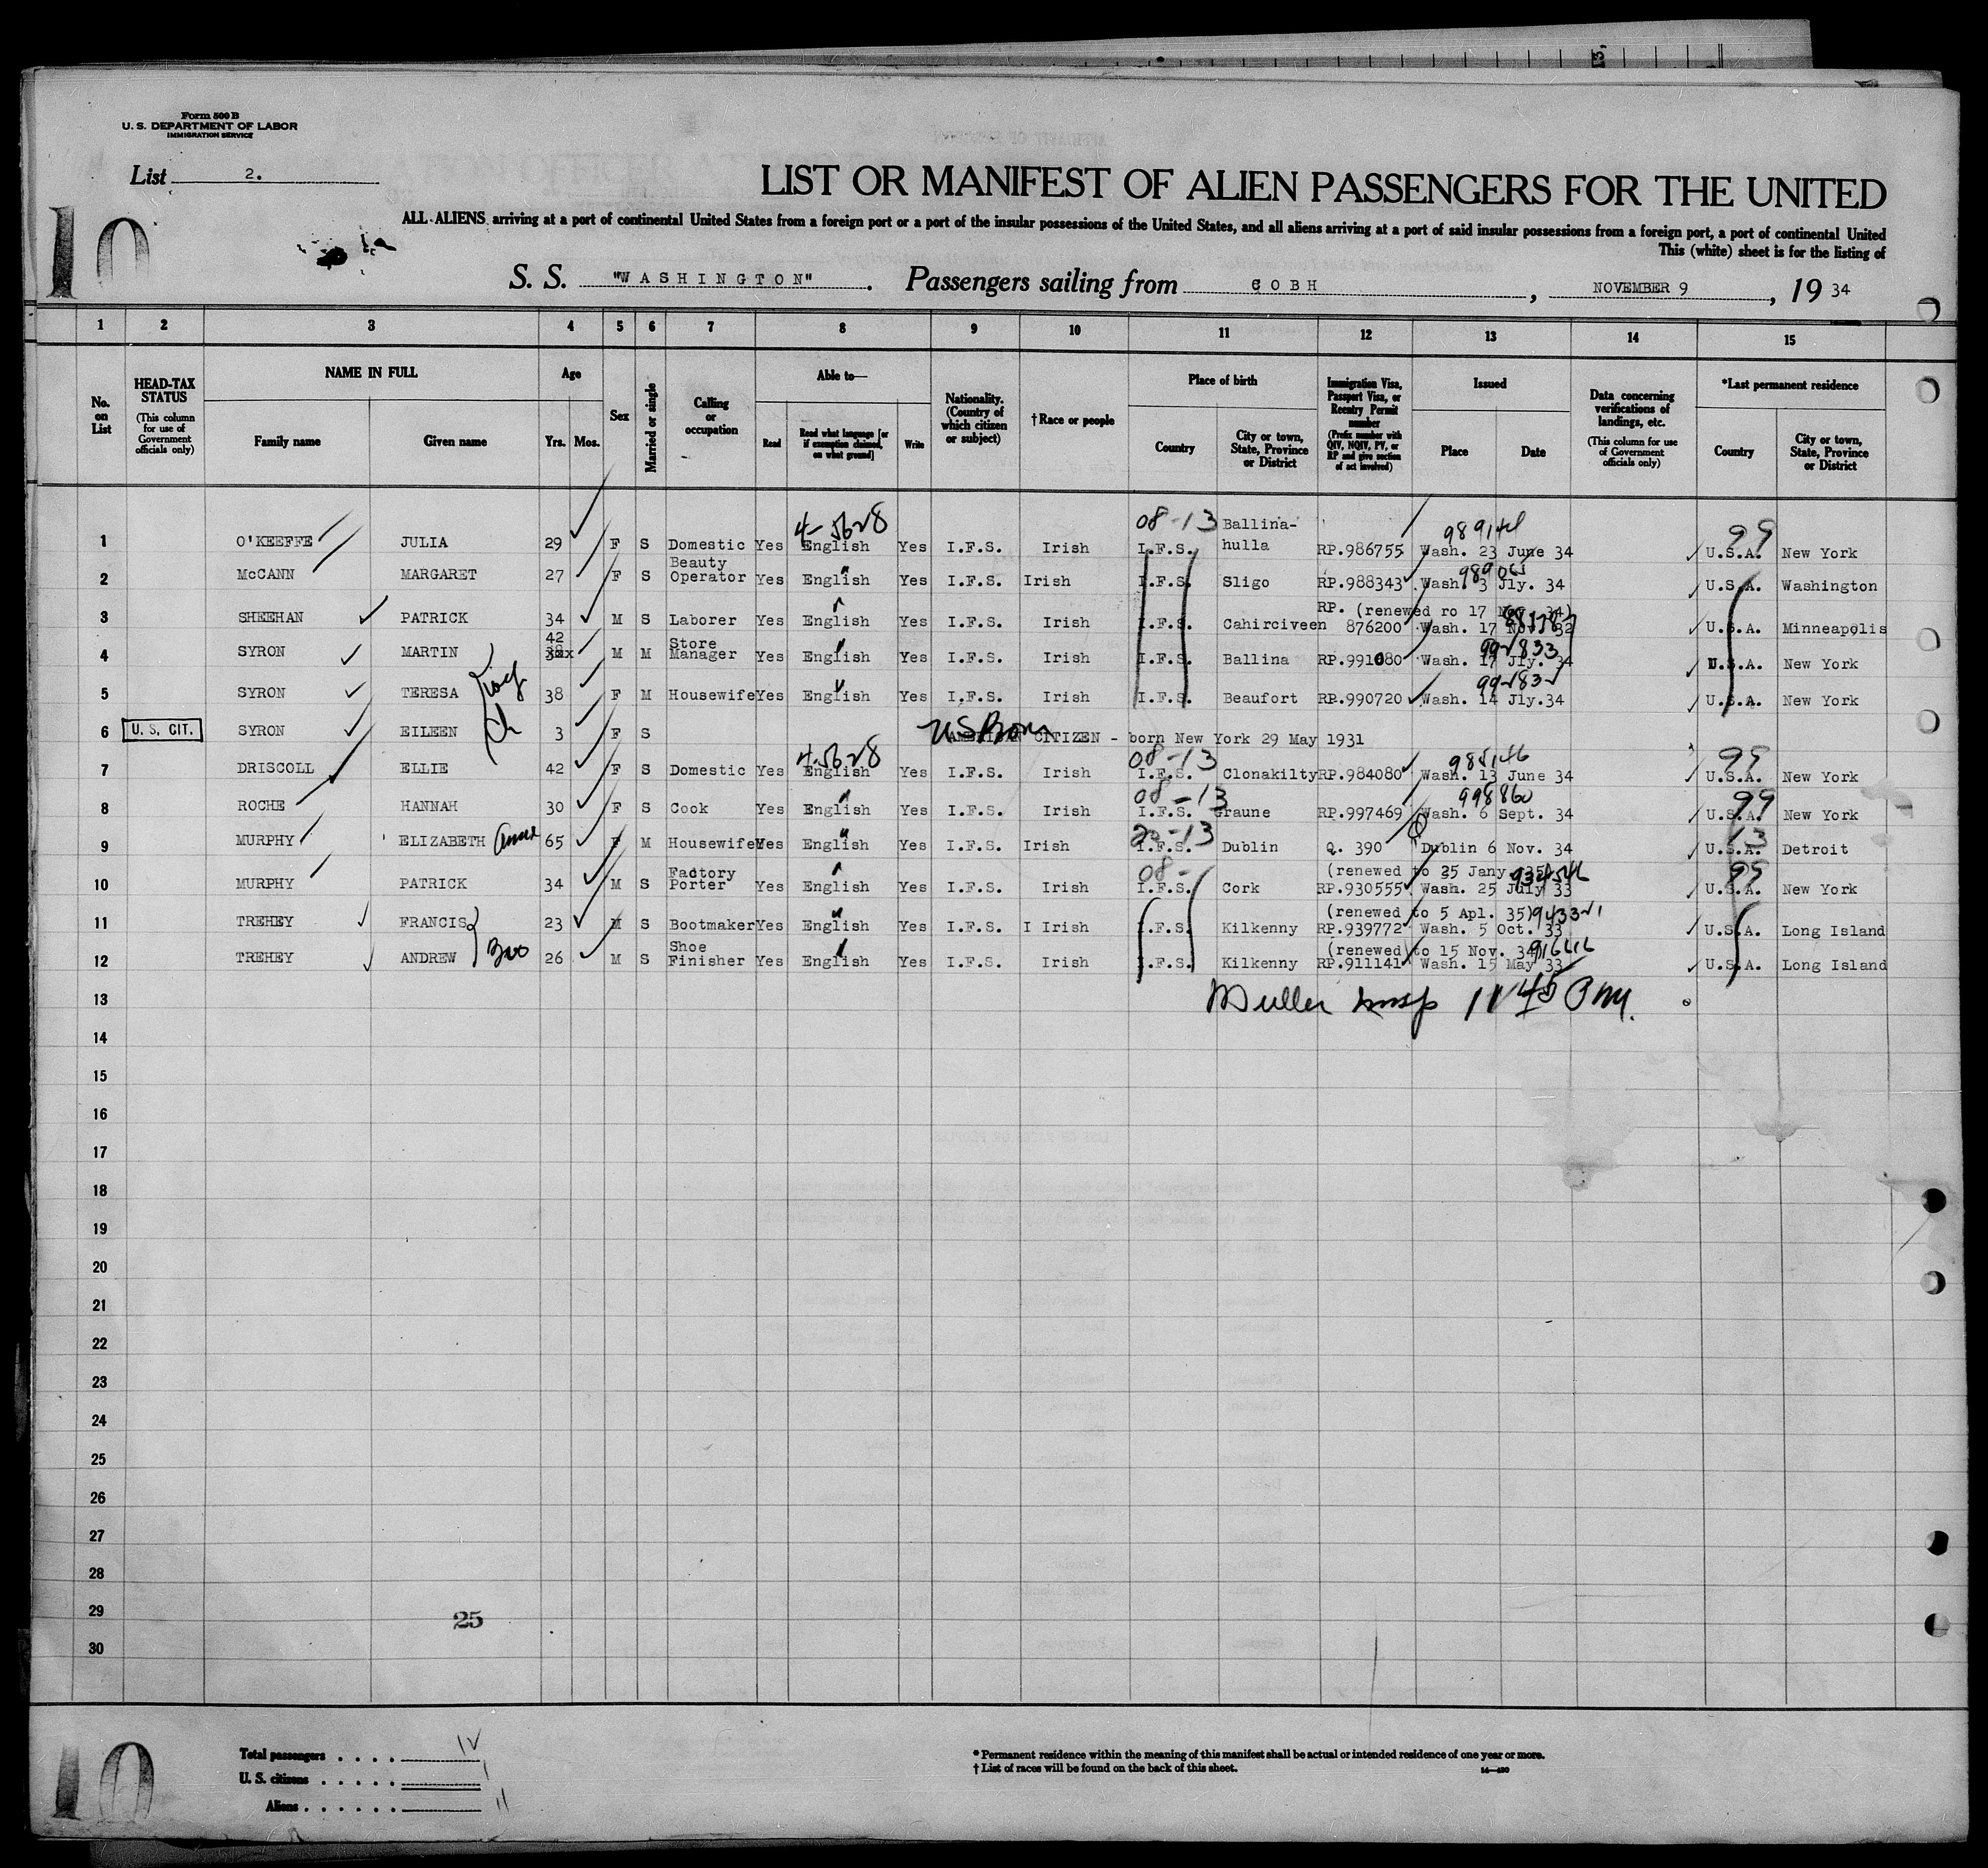 Form 500 B
U. S. DEPARTMENT OF LABOR
IMMIGRATION SERVICE
List 2.
10
LIST OR MANIFEST OF ALIEN PASSENGERS FOR THE UNITED
ALL ALIENS arriving at a port of continental United States from a foreign port or a port of the insular possessions of the United States, and all aliens arriving at a port of said insular possessions from a foreign port, a port of continental United
This (white) sheet is for the listing of
S. S. "WASHINGTON". Passengers sailing from COBH, NOVEMBER 9, 19 34
1 2 3 4 5 6 7 8 9 10 11 12 13 14 15
No. on List
HEAD-TAX STATUS (This column for use of Government officials only)
NAME IN FULL
Family name Given name
Age
Yrs. Mos.
Sex
Married or single
Calling or occupation
Able to—
Read Read what language [or if exemption claimed, on what ground] Write
Nationality. (Country of which citizen or subject)
† Race or people
Place of birth
Country City or town, State, Province or District
Immigration Visa, Passport Visa, or Reentry Permit number (Prefix number with QIV, NQIV, PV, or RP and give section of act involved)
Issued
Place Date
Data concerning verifications of landings, etc. (This column for use of Government officials only)
*Last permanent residence
Country City or town, State, Province or District
4-5628 08-13 Ballina- 99
1 O'KEEFFE JULIA 29 F S Domestic Yes English Yes I.F.S. Irish I.F.S. hulla RP.986755 Wash. 23 June 34 U.S.A. New York
Beauty
2 McCANN MARGARET 27 F S Operator Yes English Yes I.F.S. Irish I.F.S. Sligo RP.988343 Wash. 3 Jly. 34 U.S.A. Washington
RP. (renewed ro 17 Nov. 34)
3 SHEEHAN PATRICK 34 M S Laborer Yes English Yes I.F.S. Irish I.F.S. Cahirciveen 876200 Wash. 17 Nov. 32 U.S.A. Minneapolis
42 Store
4 SYRON MARTIN M M Manager Yes English Yes I.F.S. Irish I.F.S. Ballina RP.991080 Wash. 17 Jly. 34 U.S.A. New York
5 SYRON TERESA 38 F M Housewife Yes English Yes I.F.S. Irish I.F.S. Beaufort RP.990720 Wash. 14 Jly.34 U.S.A. New York
US Born
6 U. S. CIT. SYRON EILEEN 3 F S AMERICAN CITIZEN - born New York 29 May 1931
4-5628 08-13 985146 99
7 DRISCOLL ELLIE 42 F S Domestic Yes English Yes I.F.S. Irish I.F.S. Clonakilty RP.984080 Wash. 13 June 34 U.S.A. New York
08-13 998860 99
8 ROCHE HANNAH 30 F S Cook Yes English Yes I.F.S. Irish I.F.S. Graune RP.997469 Wash. 6 Sept. 34 U.S.A. New York
13
9 MURPHY ELIZABETH Anne 65 F M Housewife Yes English Yes I.F.S. Irish I.F.S. Dublin Q. 390 Dublin 6 Nov. 34 U.S.A. Detroit
Factory 08- (renewed to 25 Jany 35) 99
10 MURPHY PATRICK 34 M S Porter Yes English Yes I.F.S. Irish I.F.S. Cork RP.930555 Wash. 25 July 33 U.S.A. New York
(renewed to 5 Apl. 35)
11 TREHEY FRANCIS 23 M S Bootmaker Yes English Yes I.F.S. I Irish I.F.S. Kilkenny RP.939772 Wash. 5 Oct. 33 U.S.A. Long Island
Bro
Shoe (renewed to 15 Nov. 34)
12 TREHEY ANDREW 26 M S Finisher Yes English Yes I.F.S. Irish I.F.S. Kilkenny RP.911141 Wash. 15 May 33 U.S.A. Long Island
13 Muller Insp 11 45 PM.
14
15
16
17
18
19
20
21
22
23
24
25
26
27
28
29 25
30
10
Total passengers . . . . 12
U. S. citizens . . . . . 1
Aliens . . . . . . 11
* Permanent residence within the meaning of this manifest shall be actual or intended residence of one year or more.
† List of races will be found on the back of this sheet.